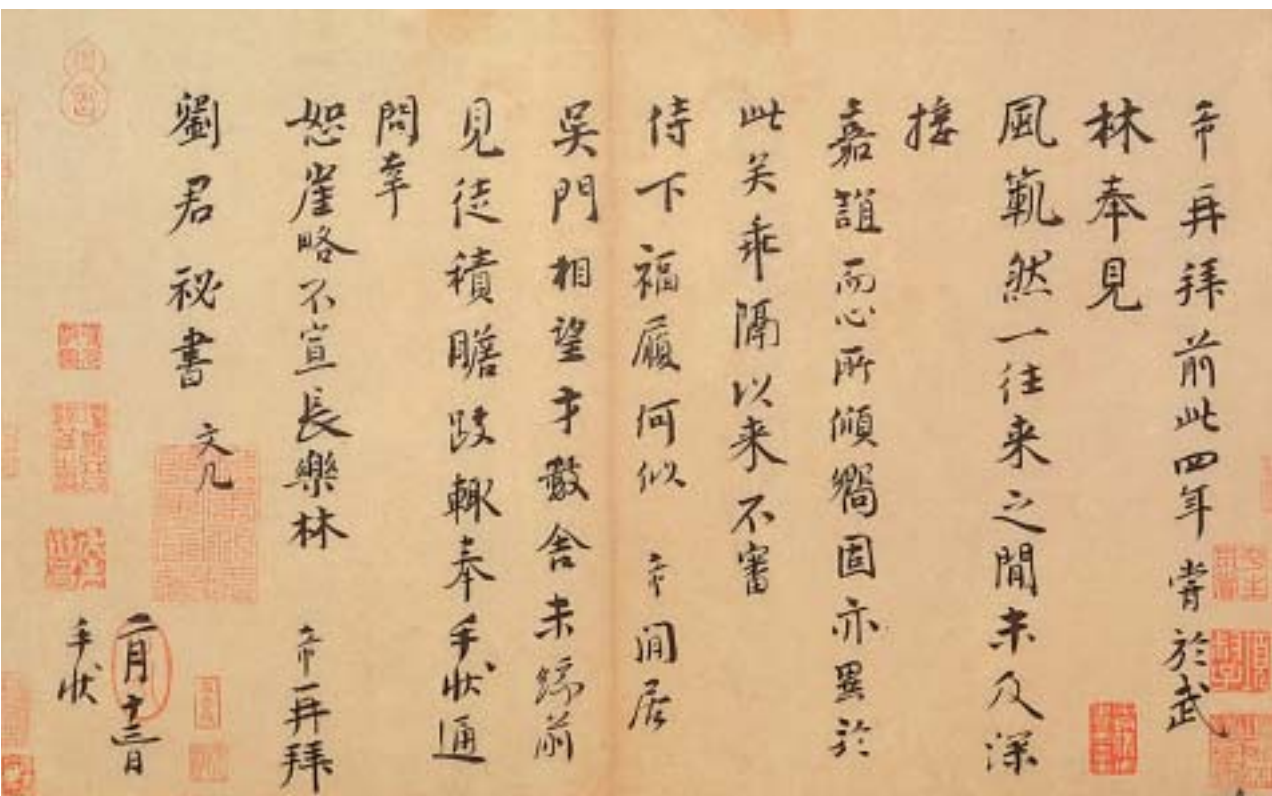 希再拜前此四年嘗於武
林奉見
風範然一往来之間未及深
接
嘉誼而心所傾嚮固亦異於
此矣乖隔以来不審
侍下福履何似 希閒居
吳門相望才數舍未緣前
見徒積瞻跂輙奉手状通
問幸
恕崖略不宣長樂林 希再拜
劉君祕書 文几
二月十三日
手状